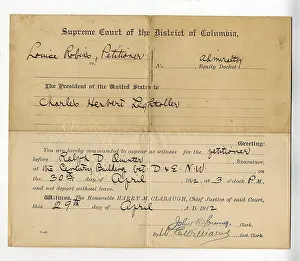 Supreme Court of the District of Columbia,
Louise Robins, Petitioner
vs.
No. Admiralty
Equity Docket
The President of the United States to
Charles Herbert Lightoller
Greeting:
You are hereby commanded to appear as witness for the petitioner
before Ralph D. Quinter, Examiner,
at the Century Building bet D & E N.W
the 30th day of April, 1912, at 3 o'clock P.M.,
and not depart without leave.
Witness, The Honorable HARRY M. CLABAUGH, Chief Justice of said Court,
this 29th day of April A. D. 1912
John R. Young, Clerk.
By W E Williams Asst. Clerk.